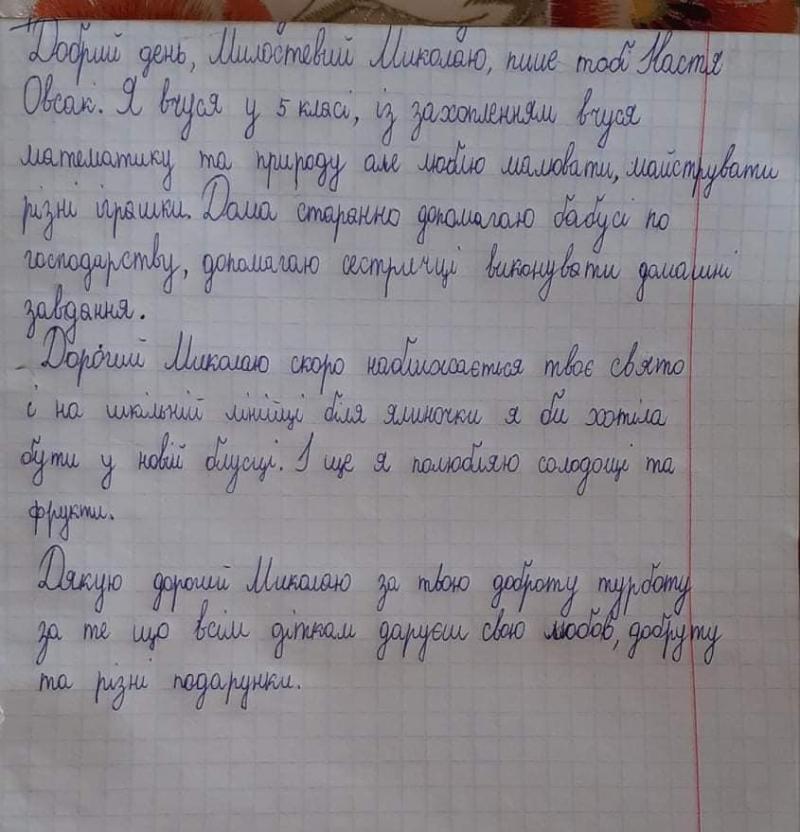 Добрий день, Милостевий Миколаю, пише тобі Настя
Овсак. Я вчуся у 5 класі, із захопленням вчуся
математику та природу але люблю малювати, майструвати
різні іграшки. Дома старанно допомагаю бабусі по
господарству, допомагаю сестричці виконувати домашні
завдання.
Дорогий Миколаю скоро наближається твоє свято
і на шкільній лінійці біля ялиночки я би хотіла
бути у новій блузці. І ще я полюбляю солодощі та
фрукти.
Дякую дорогий Миколаю за твою доброту турботу
за те що всім діткам даруєш свою любов, доброту
та різні подарунки.